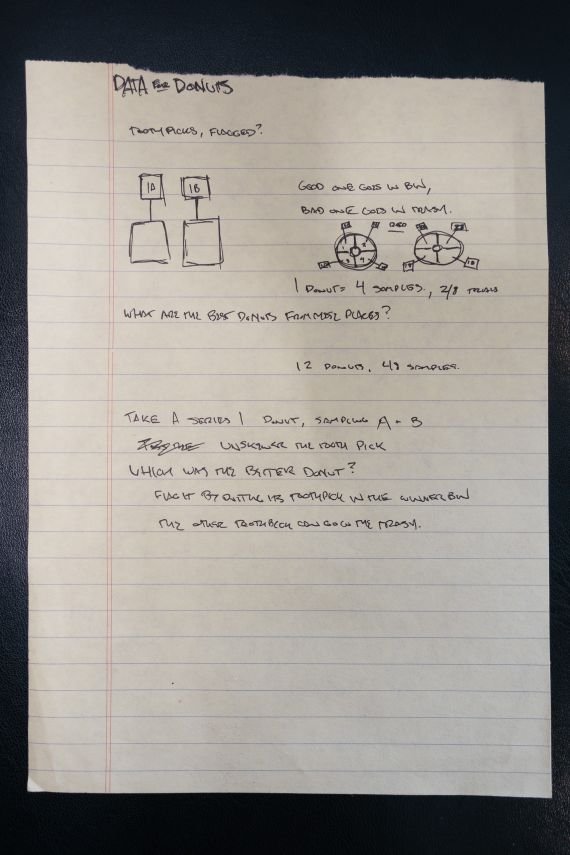 DATA FOR DONUTS
TOOTHPICKS, FLAGGED?
1A 1B
GOOD ONE GOES IN BIN,
BAD ONE GOES IN TRASH.
1 DONUT = 4 SAMPLES, 2/8 TRIALS
WHAT ARE THE BEST DONUTS FROM THESE PLACES?
12 DONUTS, 48 SAMPLES.
TAKE A SERIES 1 DONUT, SAMPLING A + B
UNSKEWER THE TOOTH PICK
WHICH WAS THE BETTER DONUT?
FLAG IT BY PUTTING ITS TOOTHPICK IN THE WINNER BIN
THE OTHER TOOTHPICK CAN GO IN THE TRASH.